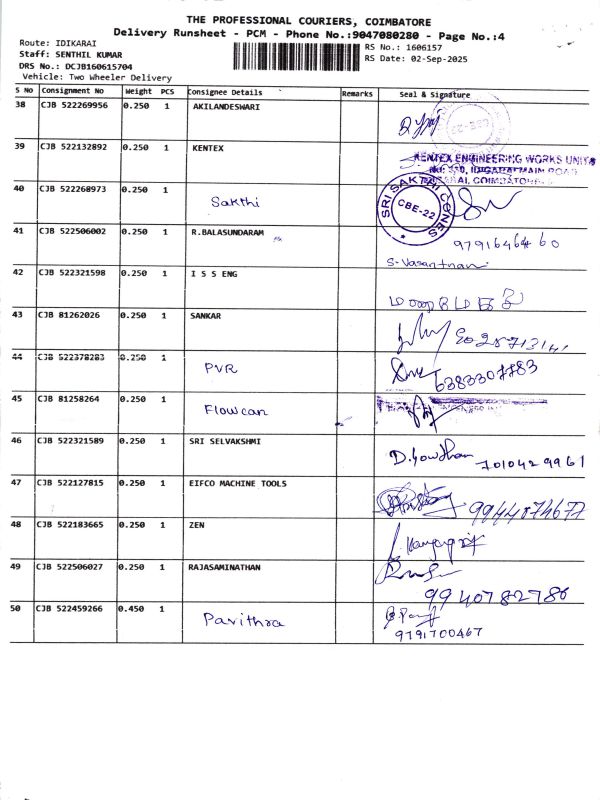 THE PROFESSIONAL COURIERS, COIMBATORE
Delivery Runsheet - PCM - Phone No.:9047080280 - Page No.:4
Route: IDIKARAI
Staff: SENTHIL KUMAR
DRS No.: DCJB160615704
Vehicle: Two Wheeler Delivery
RS No.: 1606157
RS Date: 02-Sep-2025
S No Consignment No Weight PCS Consignee Details Remarks Seal & Signature
38 CJB 522269956 0.250 1 AKILANDESWARI
39 CJB 522132892 0.250 1 KENTEX
KENTEX ENGINEERING WORKS UNIT
40 CJB 522268973 0.250 1 Sakthi
SRI SAKTHI CONES
CBE-22
41 CJB 522506002 0.250 1 R.BALASUNDARAM
S-Vasanthan
42 CJB 522321598 0.250 1 I S S ENG
43 CJB 81262026 0.250 1 SANKAR
44 CJB 522378283 0.250 1 PVR
6383307783
45 CJB 81258264 0.250 1 Flowcan
46 CJB 522321589 0.250 1 SRI SELVAKSHMI
D.Gowtham 7010429961
47 CJB 522127815 0.250 1 EIFCO MACHINE TOOLS
9944074677
48 CJB 522183665 0.250 1 ZEN
49 CJB 522506027 0.250 1 RAJASAMINATHAN
9940782786
50 CJB 522459266 0.450 1 Pavithra
9791700467